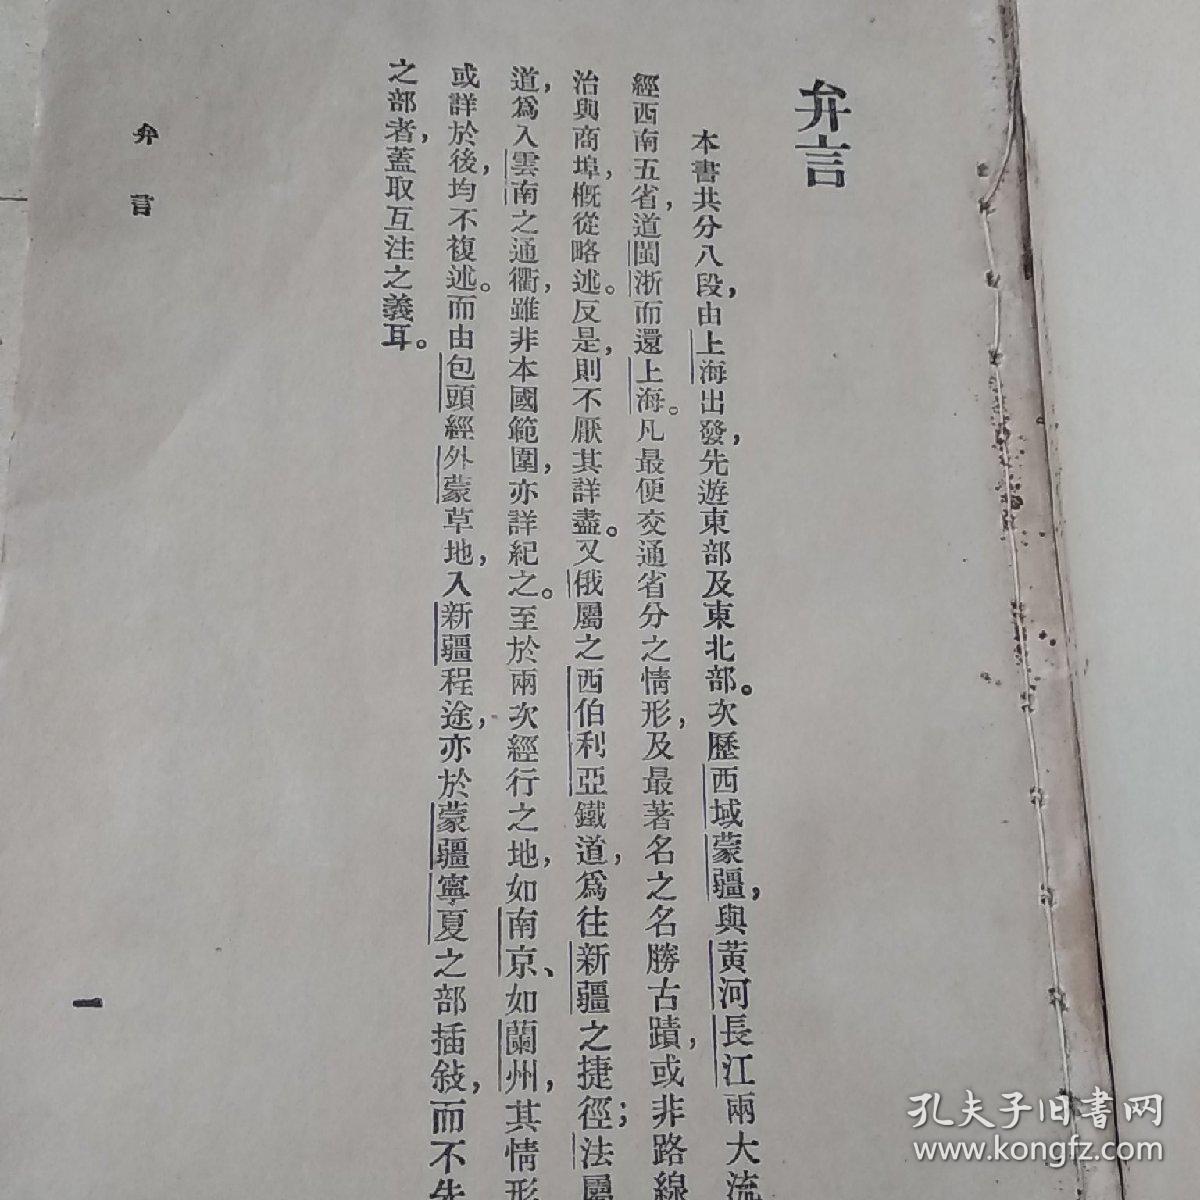 弁言
本書共分八段，由上海出發，先遊東部及東北部。次歷西域蒙疆，與黃河長江兩大流
經西南五省，道閩浙而還上海。凡最便交通省分之情形，及最著名之名勝古蹟，或非路線
治與商埠，概從略述。反是，則不厭其詳盡。又俄屬之西伯利亞鐵道，爲往新疆之捷徑；法屬
道，爲入雲南之通衢，雖非本國範圍，亦詳紀之。至於兩次經行之地，如南京、如蘭州，其情形
或詳於後，均不複述。而由包頭經外蒙草地，入新疆程途，亦於蒙疆寧夏之部插敍，而不先
之部者，蓋取互注之義耳。
弁言
一
孔夫子旧書网
www.kongfz.com